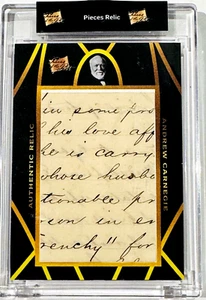 Pieces Relic
AUTHENTIC RELIC
ANDREW CARNEGIE
in some pro
his love aff
he is carry
whose husba
tionable pr
son in en
renchy" for